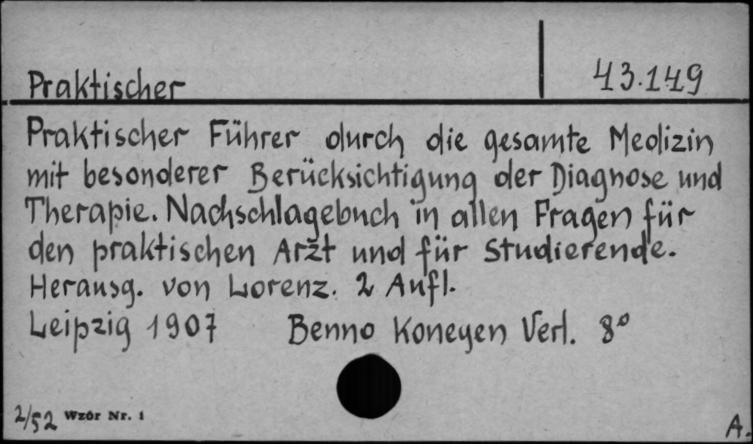 Praktischer 43.149
Praktischer Führer durch die gesamte Medizin
mit besonderer Berücksichtigung der Diagnose und
Therapie. Nachschlagebuch in allen Fragen für
den praktischen Arzt und für Studierende.
Herausg. von Lorenz. 2 Aufl.
Leipzig 1907 Benno Konegen Verl. 8°
2/52 Wzór Nr. 1 A.